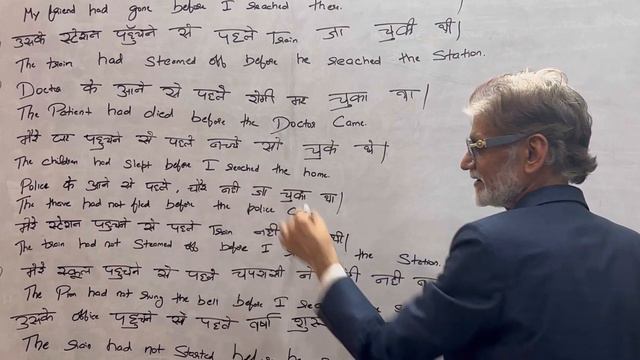 My friend had gone before I reached there.
उसके स्टेशन पहुँचने से पहले Train जा चुकी थी।
The train had steamed off before he reached the Station.
Doctor के आने से पहले रोगी मर चुका था।
The Patient had died before the Doctor Came.
मेरे घर पहुचने से पहले बच्चे सो चुके थे।
The children had slept before I reached the home.
Police के आने से पहले, चोर नही जा चुका था।
The thieve had not fled before the police C
मेरे स्टेशन पहुचने से पहले Train नही थी।
The train had not Steamed off before I the Station.
मेरे स्कूल पहुचने से पहले चपरासी ने नही
The Pm had not rung the bell before I
उसके office पहुचने से पहले वर्षा शुरू
The rain had not Started before he